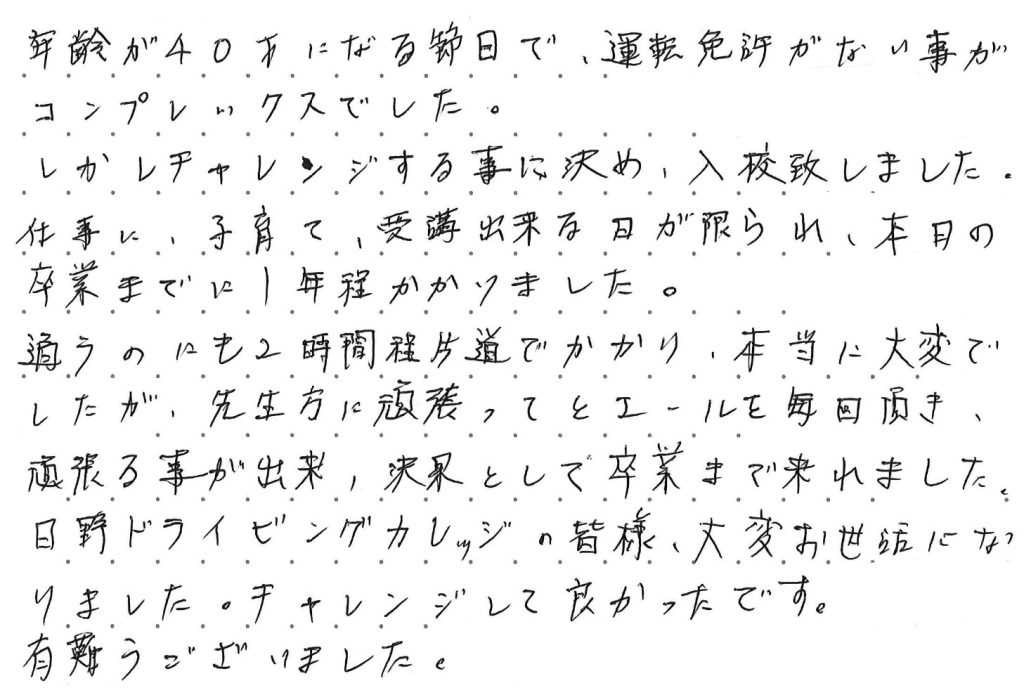 年齢が40才になる節目で、運転免許がない事が
コンプレックスでした。
しかしチャレンジする事に決め、入校致しました。
仕事に、子育て、受講出来る日が限られ、本日の
卒業までに1年程かかりました。
通うのにも2時間程片道でかかり、本当に大変で
したが、先生方に頑張ってとエールを毎回頂き、
頑張る事が出来、決果として卒業まで来れました。
日野ドライビングカレッジの皆様、大変お世話にな
りました。チャレンジして良かったです。
有難うございました。